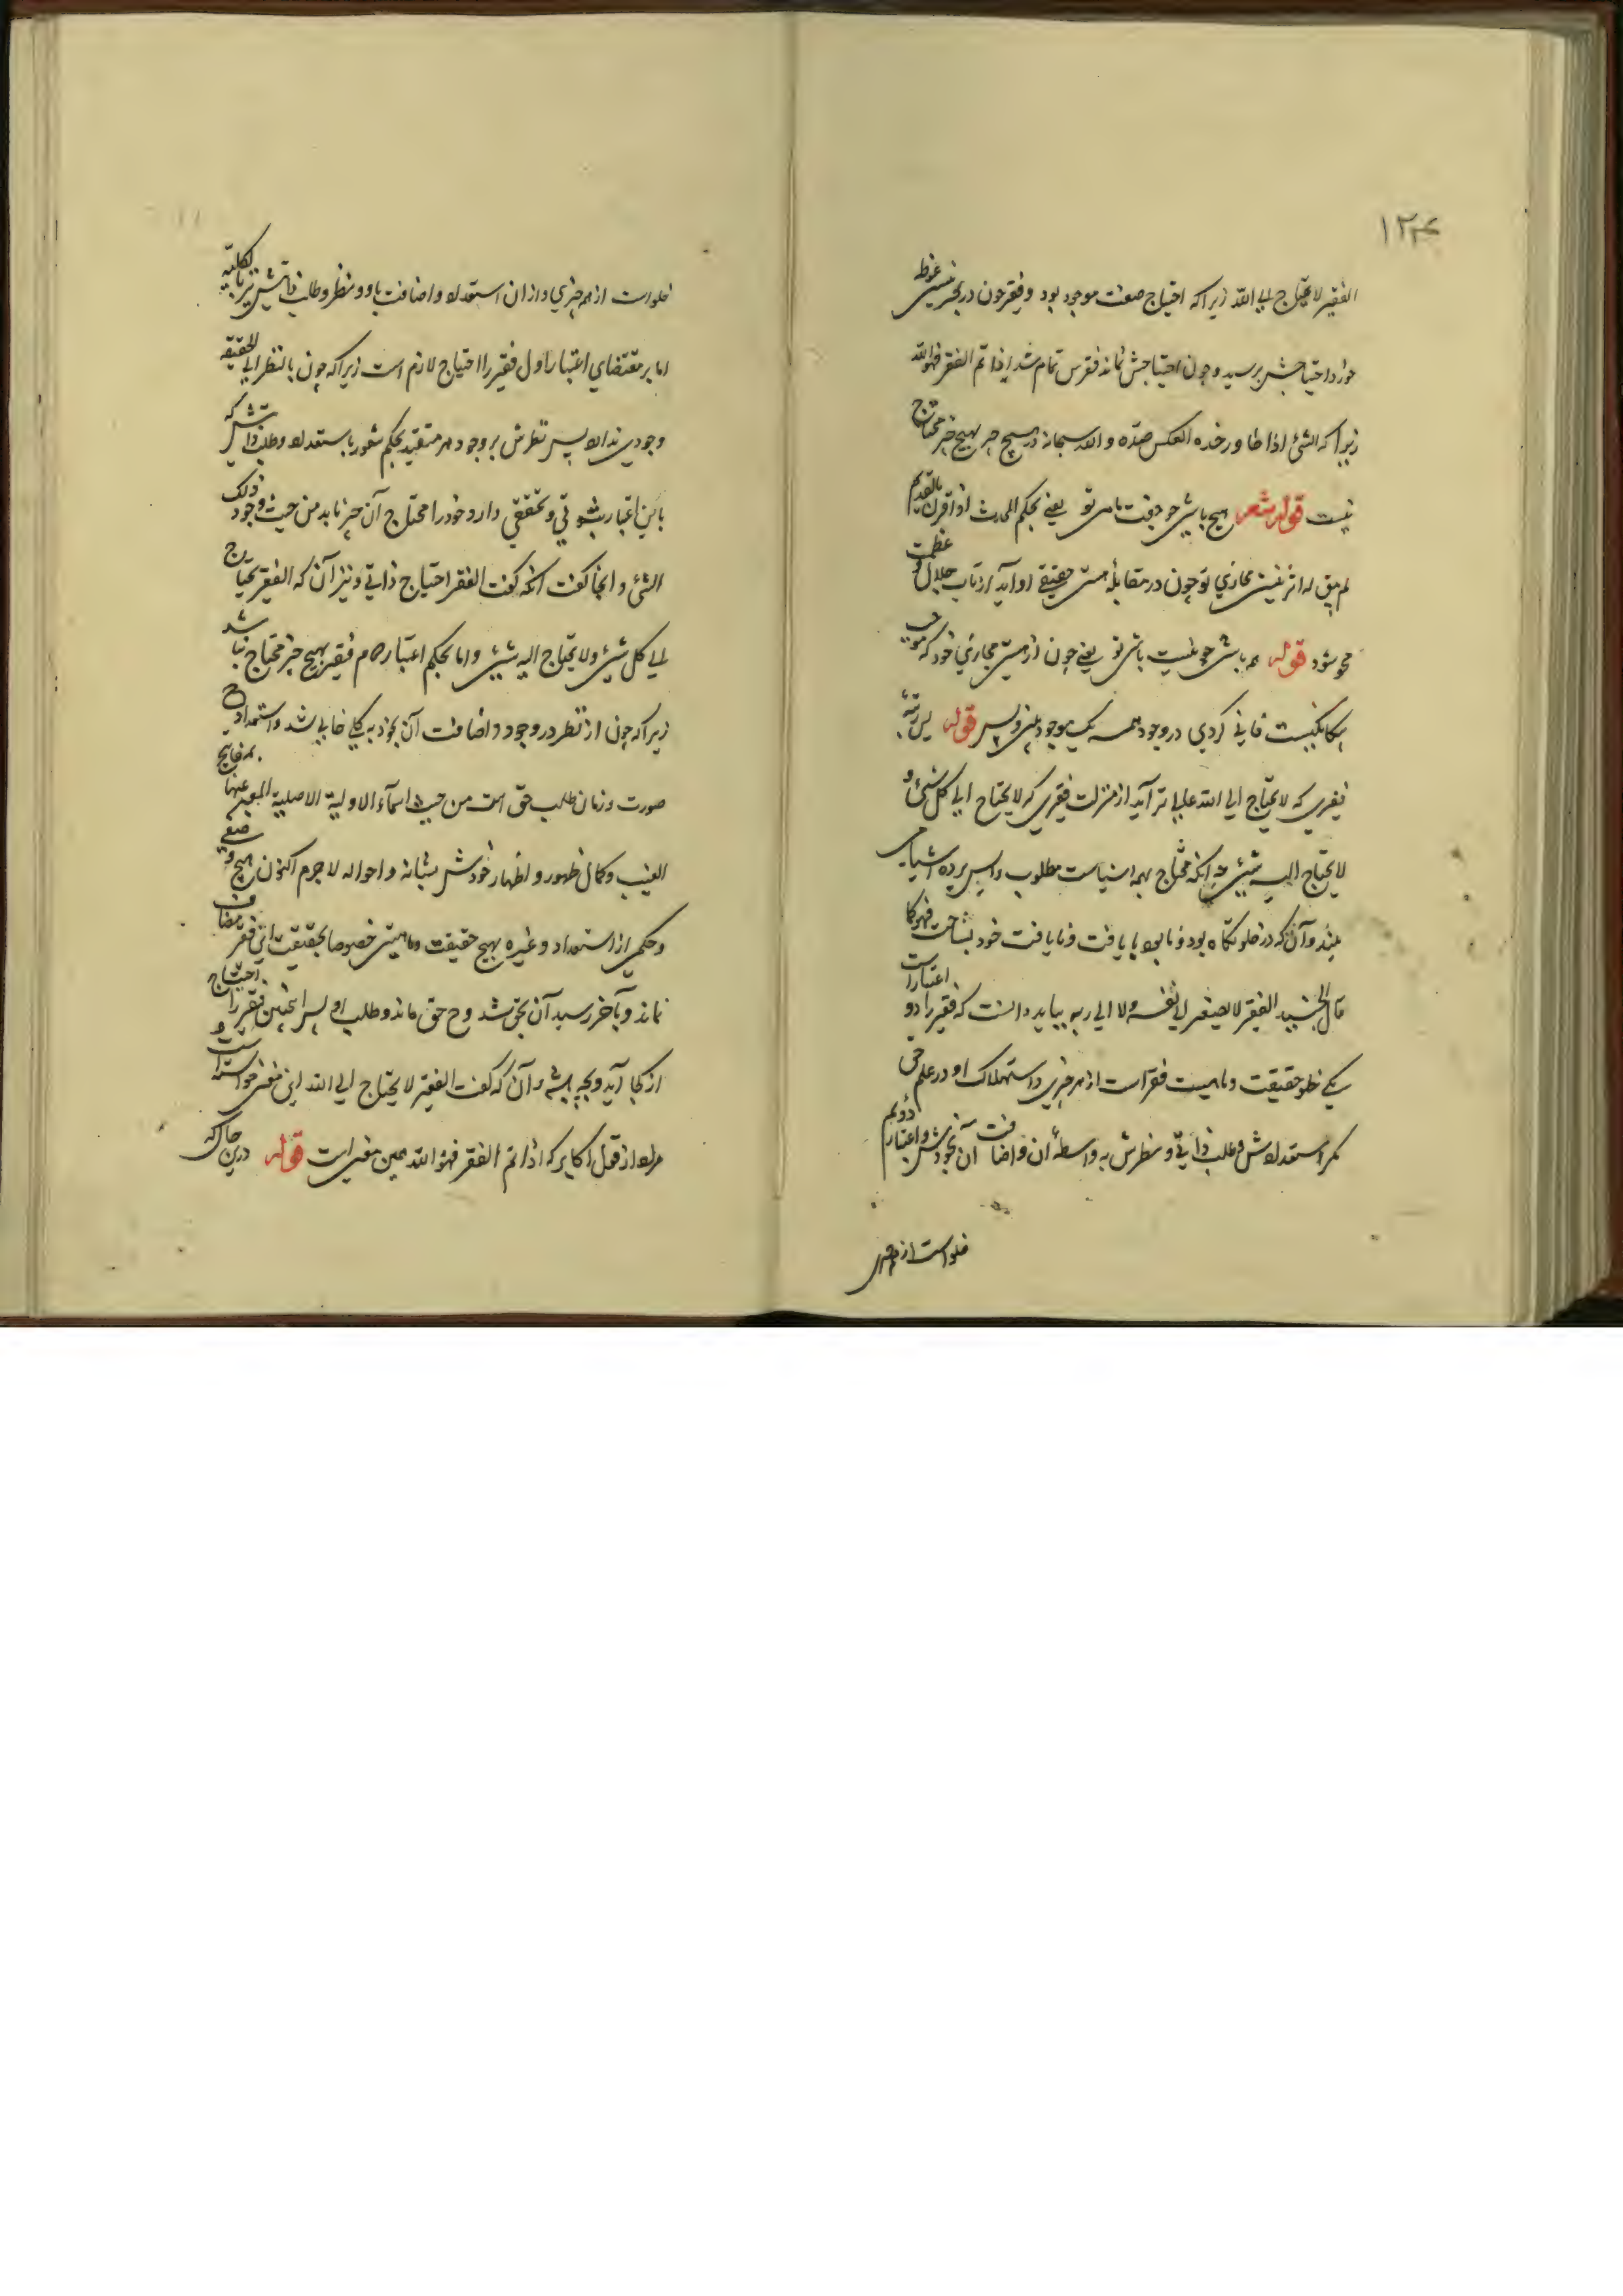 ۱۲۴
الفقیر لا یحتاج الی الله زیرا که احتیاج صفت موجود بود و فقیر چون در بحر نیستی غوطه
خورد احتیاجش برسید و چون احتیاجش نماند فقرش تمام شد اذا تم الفقر فهو الله
زیرا که الشئ اذا جاوز حده انعکس ضده و الله سبحانه در هیچ چیز بهیچ چیز محتاج
نیست قوله شعر هیچ باشی چو جفت باشی تو یعنی بحکم المحدث اذا قورن بالقدیم
لم یبق له اثر نیستی مجازی تو چون در مقابلهٔ هستی حقیقی او آید از تاب جلال و عظمت
محو شود قوله همه باشی چو نیست باشی تو یعنی چون از هستی مجازی خود که موجب
یکانکیست فانی کردی در وجود همه یک موجود بینی و بس قوله پس رتبهٔ
فقیری که لا یحتاج الی الله عالی تر آید از منزلت فقیری که لا یحتاج الی کل شئ و
لا یحتاج الیه شئ چه آنکه محتاج همه اشیاست مطلوب را پس پرده اشیا می
بیند و آن که در خلوتگاه بود و نابود با یافت و نایافت خود بساخت فهو کما
قال الجنید الفقیر لا یفتقر الی نفسه ولا الی ربه بباید دانست که فقیر را دو اعتبار است
یکی خلو حقیقت و ماهیت فقر است از هر چیزی و استهلاک او در علم حق
مکر استعدادش و طلب ذاتی و نظرش به واسطهٔ آن و اضافت آن بخودش و اعتبار دویم
خلو است از هر چیزی
خلو است از هر چیزی و از ان استعداد و اضافت باو و نظر و طلب ذاتیش نیز بالکلیة
اما بر مقتضای اعتبار اول فقیر را احتیاج لازم است زیرا که چون بالنظر الی الحقیقه
وجودی ندارد پس نظرش بر وجود هر متقید بحکم شعور باستعداد و طلب ذاتیش که
باین اعتبار ثبوتی و تحققی دارد خود را محتاج آن چیز یابد من حیث وجود ذلک
الشئ و اینجا کفت آنکه کفت الفقر احتیاج ذاتی و نیز آن که الفقیر یحتاج
الی کل شئ ولا یحتاج الیه شئ و اما بحکم اعتبار دوم فقیر بهیچ چیز محتاج نباشد
زیرا که چون از نظر در وجود و اضافت آن بخود به کلی خالی شد و استعدادی
صورت و زمان طلب حق است من حیث اسمآء الاولیة الاصلیة المعبر عنها بمفاتیح
الغیب و کمال ظهور و اظهار خودش بشانه و احواله لا جرم اکنون هیچ وصفی
و حکمی از استعداد و غیره بهیچ حقیقت و ماهیتی خصوصا بحقیقت این فقر مضاف
نماند و بآخر رسید آن بحق شد و هم حق ماند و طلب او پس اینچنین فقیر را احتیاج
از کجا آید و بچه باشد و آن که کفت الفقیر لا یحتاج الی الله این معنی خواسته است و
مراد از قول اکابر که اذا تم الفقر فهو الله همین معنی است قوله درین حال که